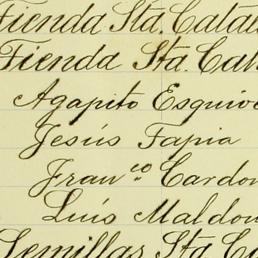 Tienda Sta. Catal
Tienda Sta. Cat
Agapito Esquive
Jesús Tapia
Franco. Cardon
Luís Maldon
Semillas Sta Ca